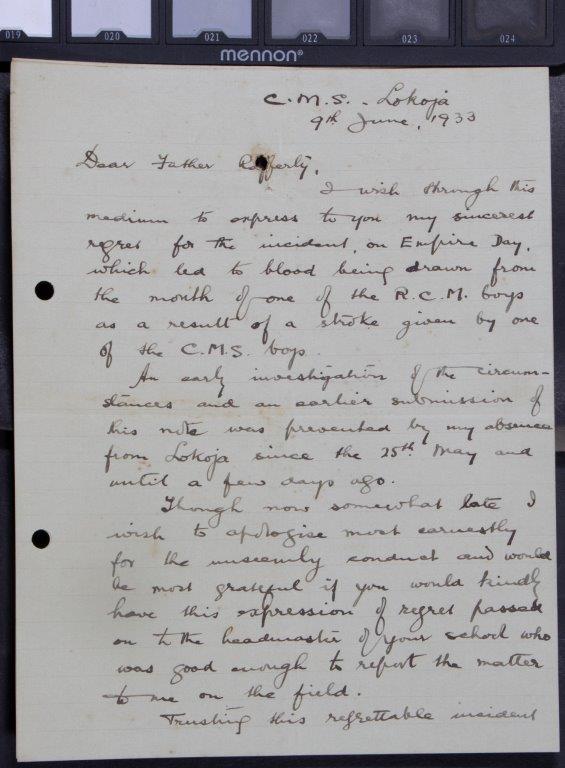 019 020 021 022 023 024
mennon®
C.M.S. - Lokoja
9th June, 1933
Dear Father Rafferty,
I wish through this
medium to express to you my sincerest
regret for the incident, on Empire Day,
which led to blood being drawn from
the mouth of one of the R.C.M. boys
as a result of a stroke given by one
of the C.M.S. boys.
An early investigation of the circum-
stances and an earlier submission of
this note was prevented by my absence
from Lokoja since the 25th May and
until a few days ago.
Though now somewhat late I
wish to apologise most earnestly
for the unseemly conduct and would
be most grateful if you would kindly
have this expression of regret passed
on to the headmaster of your school who
was good enough to report the matter
to me on the field.
Trusting this regrettable incident